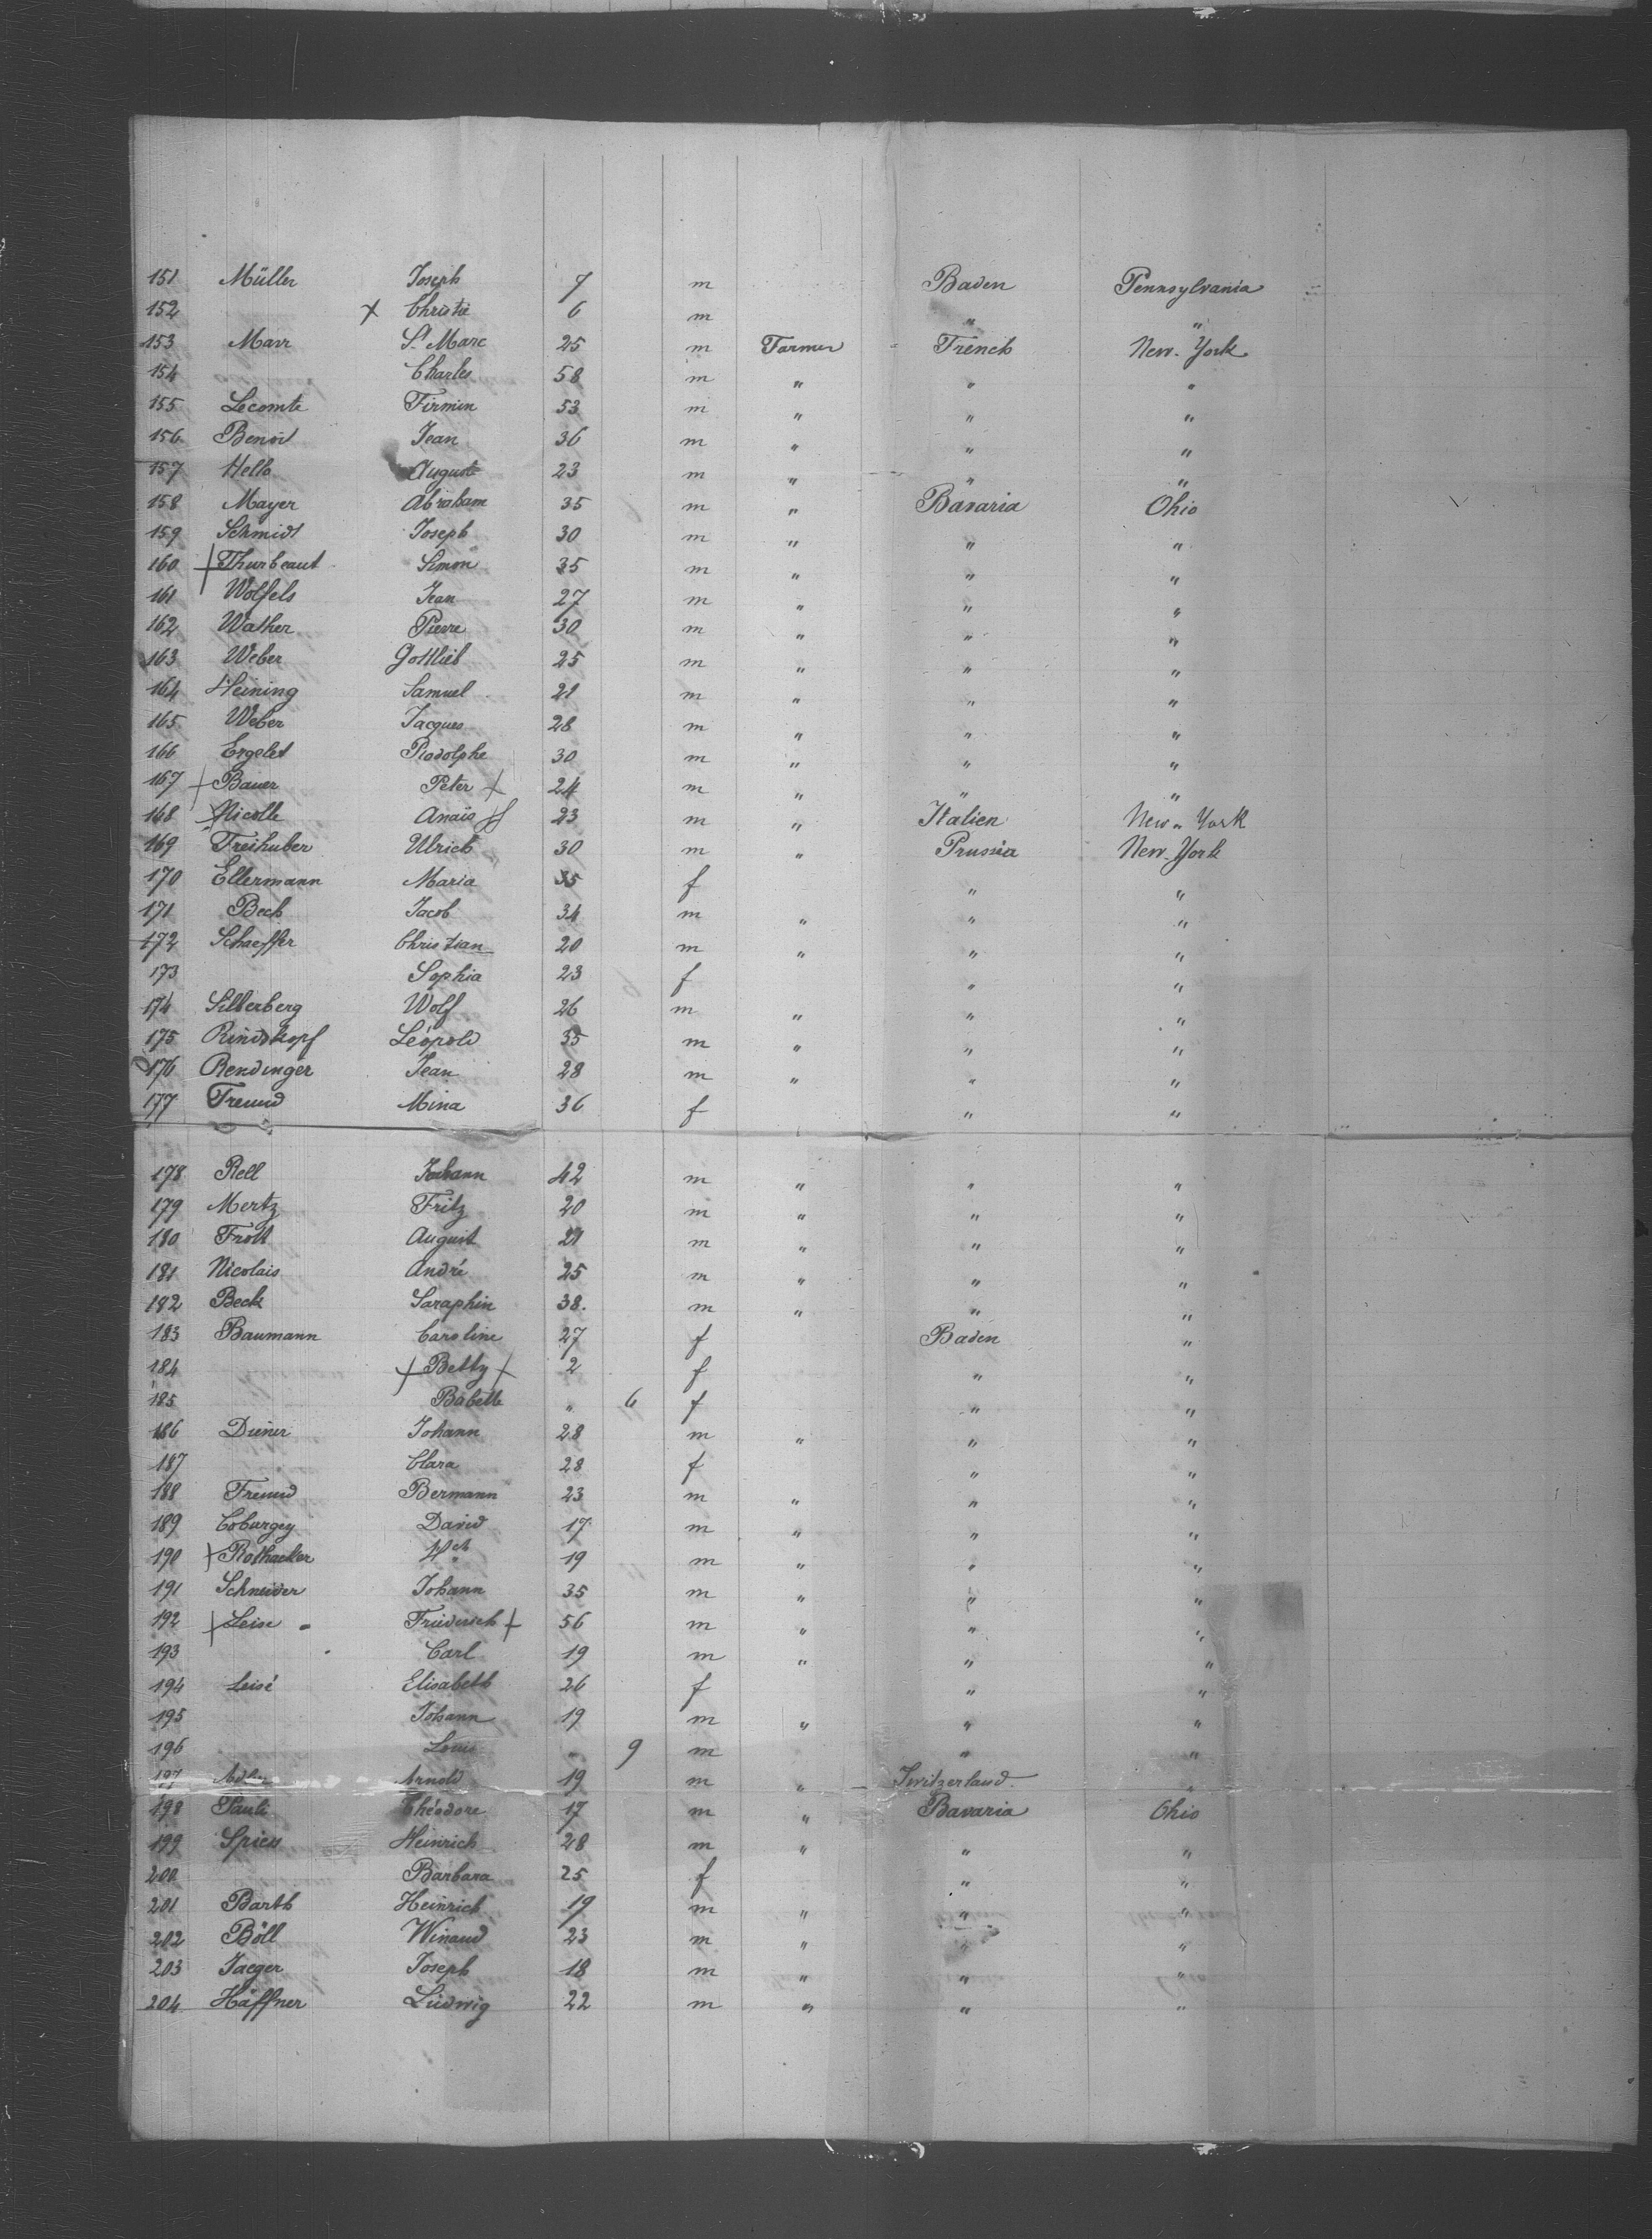 151 Müller Joseph 7 m Baden Pennsylvania
152 x Christie 6 m " "
153 Marr St. Marc 25 m Farmer French New-York
154 Charles 58 m " " "
155 Lecomte Firmin 53 m " " "
156 Benoit Jean 36 m " " "
157 Helb August 23 m " " "
158 Mayer Abraham 35 m " Bavaria Ohio
159 Schmidt Joseph 30 m " " "
160 + Thurbeaut Simon 35 m " " "
161 Wolfels Jean 27 m " " "
162 Wather Pierre 30 m " " "
163 Weber Gottlieb 25 m " " "
164 Heining Samuel 21 m " " "
165 Weber Jacques 28 m " " "
166 Ergelet Rodolphe 30 m " " "
167 + Bauer Peter + 24 m " " "
168 Nicolle Anaïs 23 m " Italien New-York
169 Freihuber Ulrich 30 m " Prussia New-York
170 Ellermann Maria 35 f " "
171 Beck Jacob 34 m " " "
172 Schaeffer Christian 20 m " " "
173 Sophia 23 f " "
174 Silberberg Wolf 26 m " " "
175 Rindskopf Léopold 35 m " " "
176 Rendinger Jean 28 m " " "
177 Freund Mina 36 f " "
178 Rell Johann 42 m " " "
179 Mertz Fritz 20 m " " "
180 Frott August 21 m " " "
181 Nicolais André 25 m " " "
182 Beck Saraphin 38. m " " "
183 Baumann Caroline 27 f Baden "
184 + Betty + 2 f " "
185 Babette " 6 f " "
186 Diener Johann 28 m " " "
187 Clara 28 f " "
188 Freund Bermann 23 m " " "
189 Coburgey David 17 m " " "
190 + Rothacker 19 m " " "
191 Schneider Johann 35 m " " "
192 + Leise Friederich + 56 m " " "
193 Carl 19 m " " "
194 Leisé Elisabeth 26 f " "
195 Johann 19 m " " "
196 Louis " 9 m " "
197 Arnold 19 m " Switzerland. "
198 Pauli Théodore 17 m " Bavaria Ohio
199 Spiess Heinrich 28 m " " "
200 Barbara 25 f " "
201 Barth Heinrich 19 m " " "
202 Böll Winand 23 m " " "
203 Jaeger Joseph 18 m " " "
204 Häffner Ludwig 22 m " " "